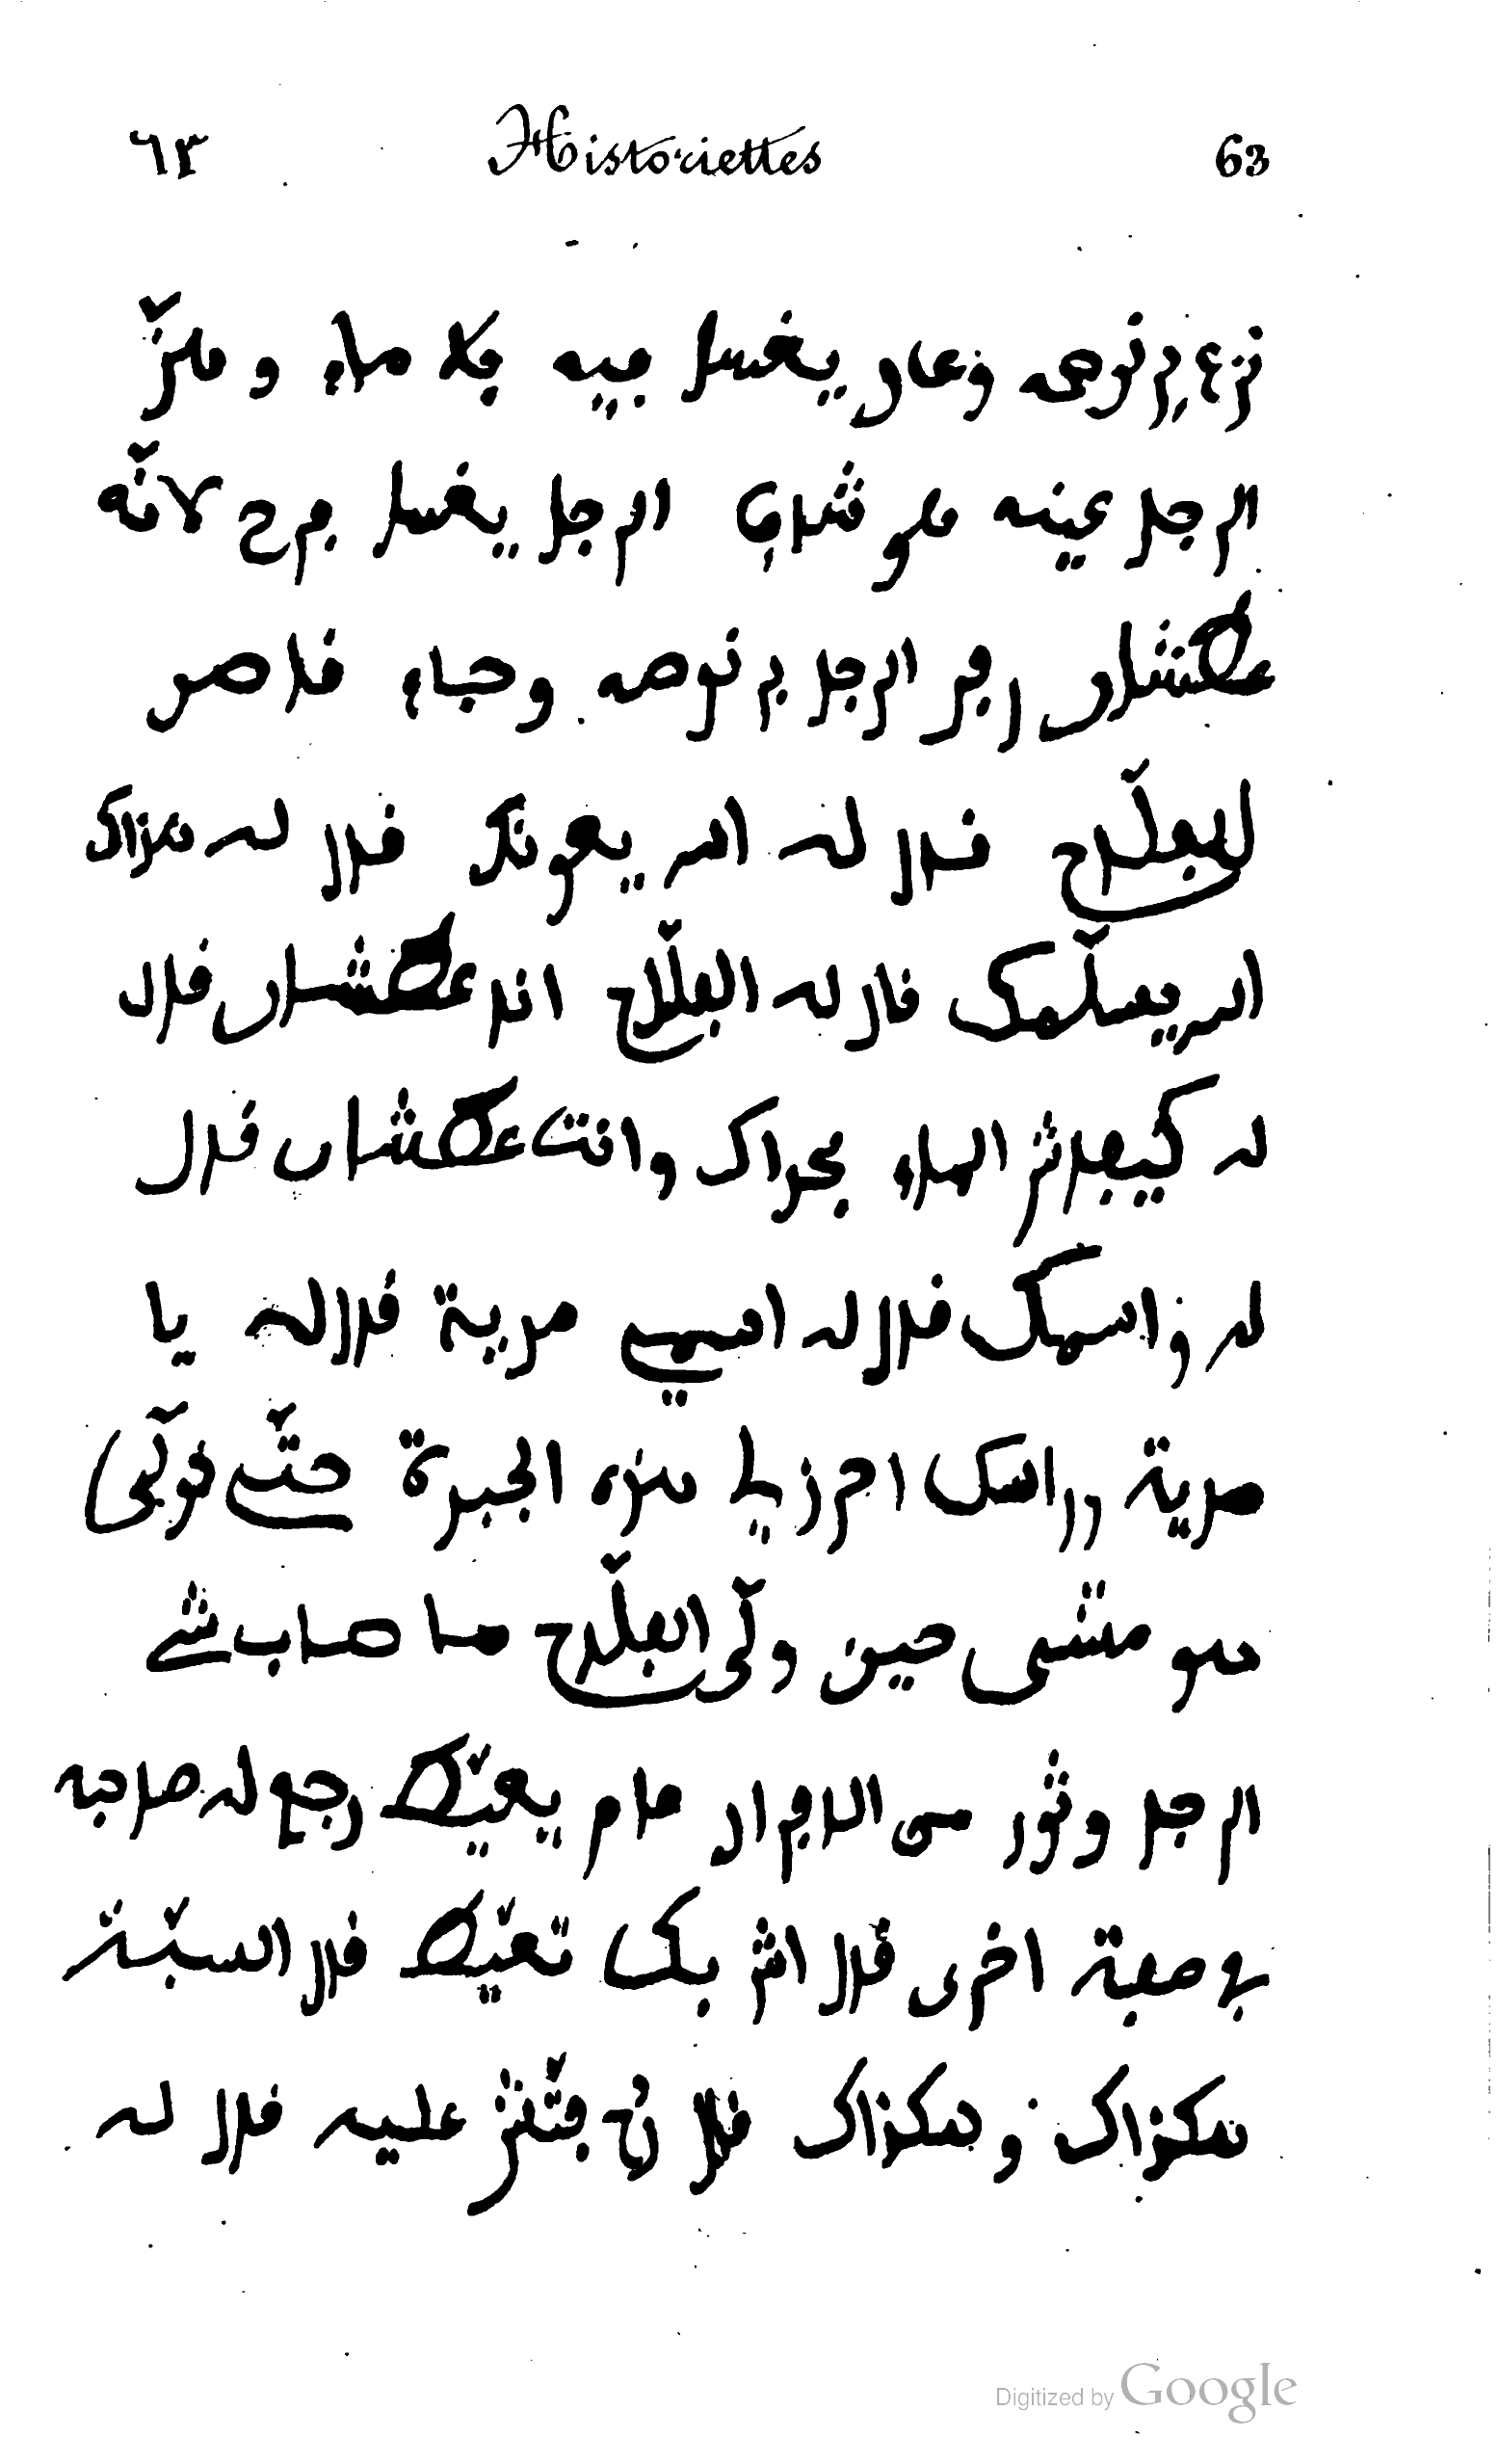 ٦٣ Historiettes 63
نزع برنوصه وعاد يغسل فيه بلا ماء وهز
الرجل عينه هو شاف الرجل يغسل فرح لانّه
عطشان رفد الرجل برنوصه وجاء قاصد
للفلّاح قال له الله يعونك قال له هذاك
الله يسلّمك قال له الفلّاح انا عطشان قال
له كيفاش الماء بحذاك وانت عطشان قال
له واسمك قال له اسمي مرية قال له يا
مرية راسك احرز يا هذه الجبرة حتّى نولّي
هو مشى حين ولّى الفلّاح ما صاب شي
الرجل وثور من الازواد قام يعيّط رجع له صاحبه
في صفة اخرى قال اش بك تعيّط قال السبّة
هكذاك وهكذاك قال فتّش عليه قال له
Digitized by Google